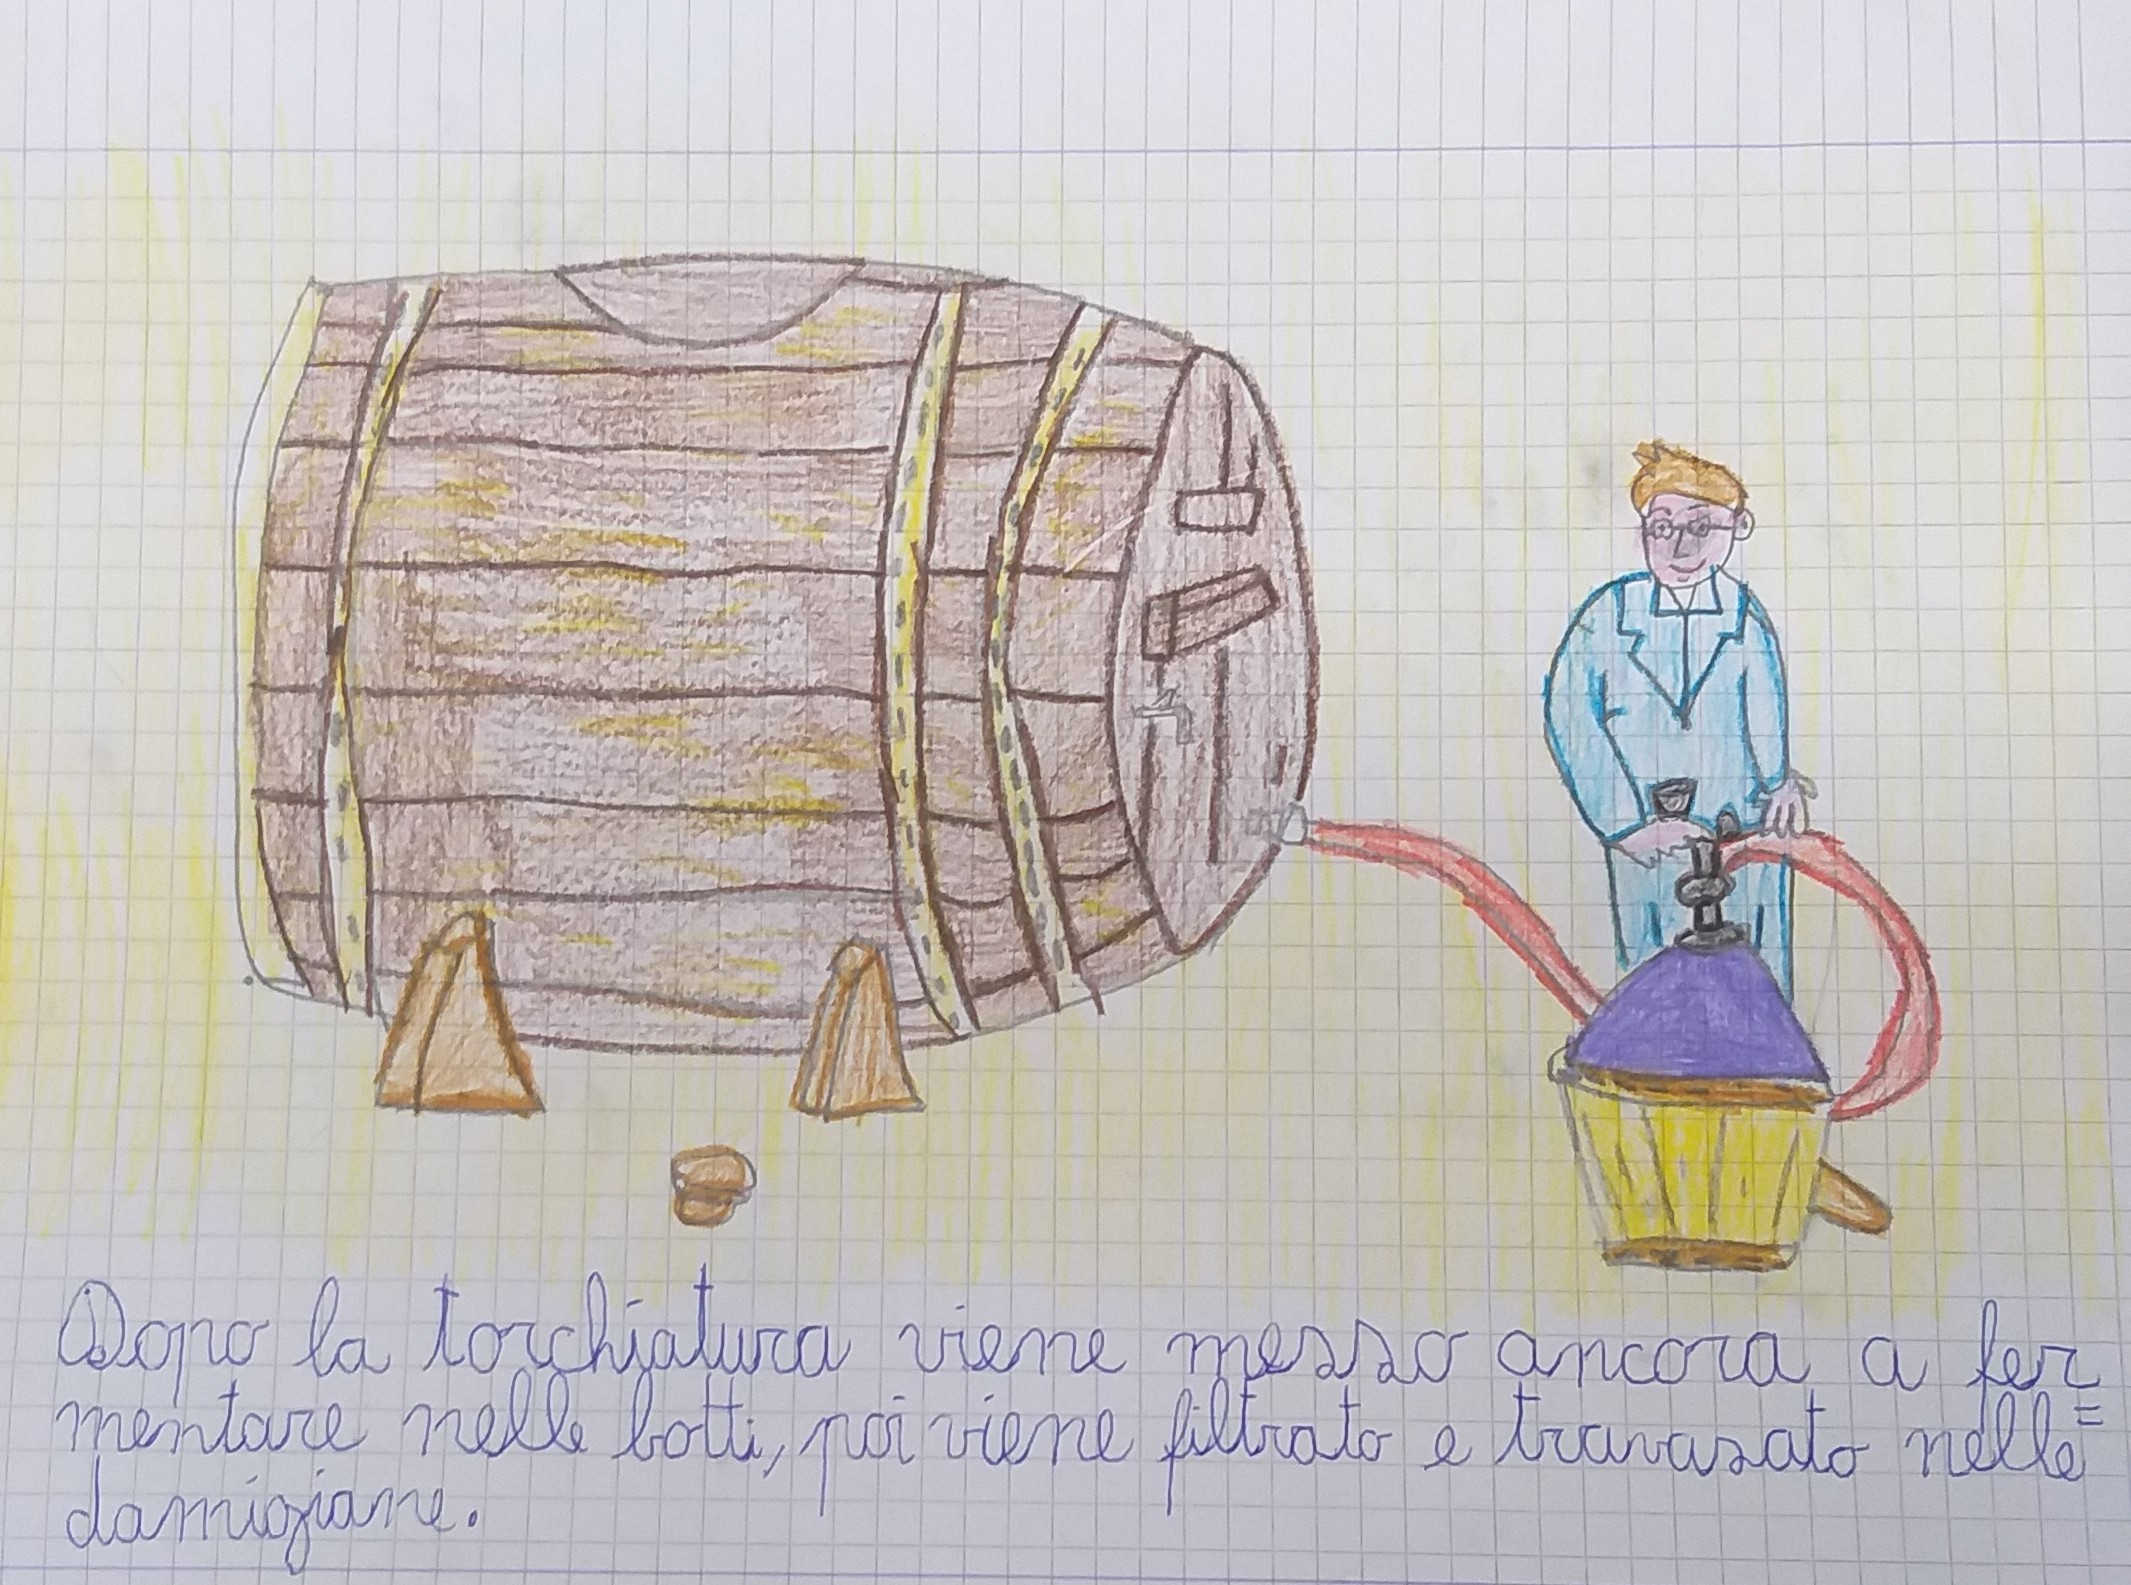 Dopo la torchiatura viene messo ancora a fer=
mentare nelle botti, poi viene filtrato e travasato nelle
damigiane.